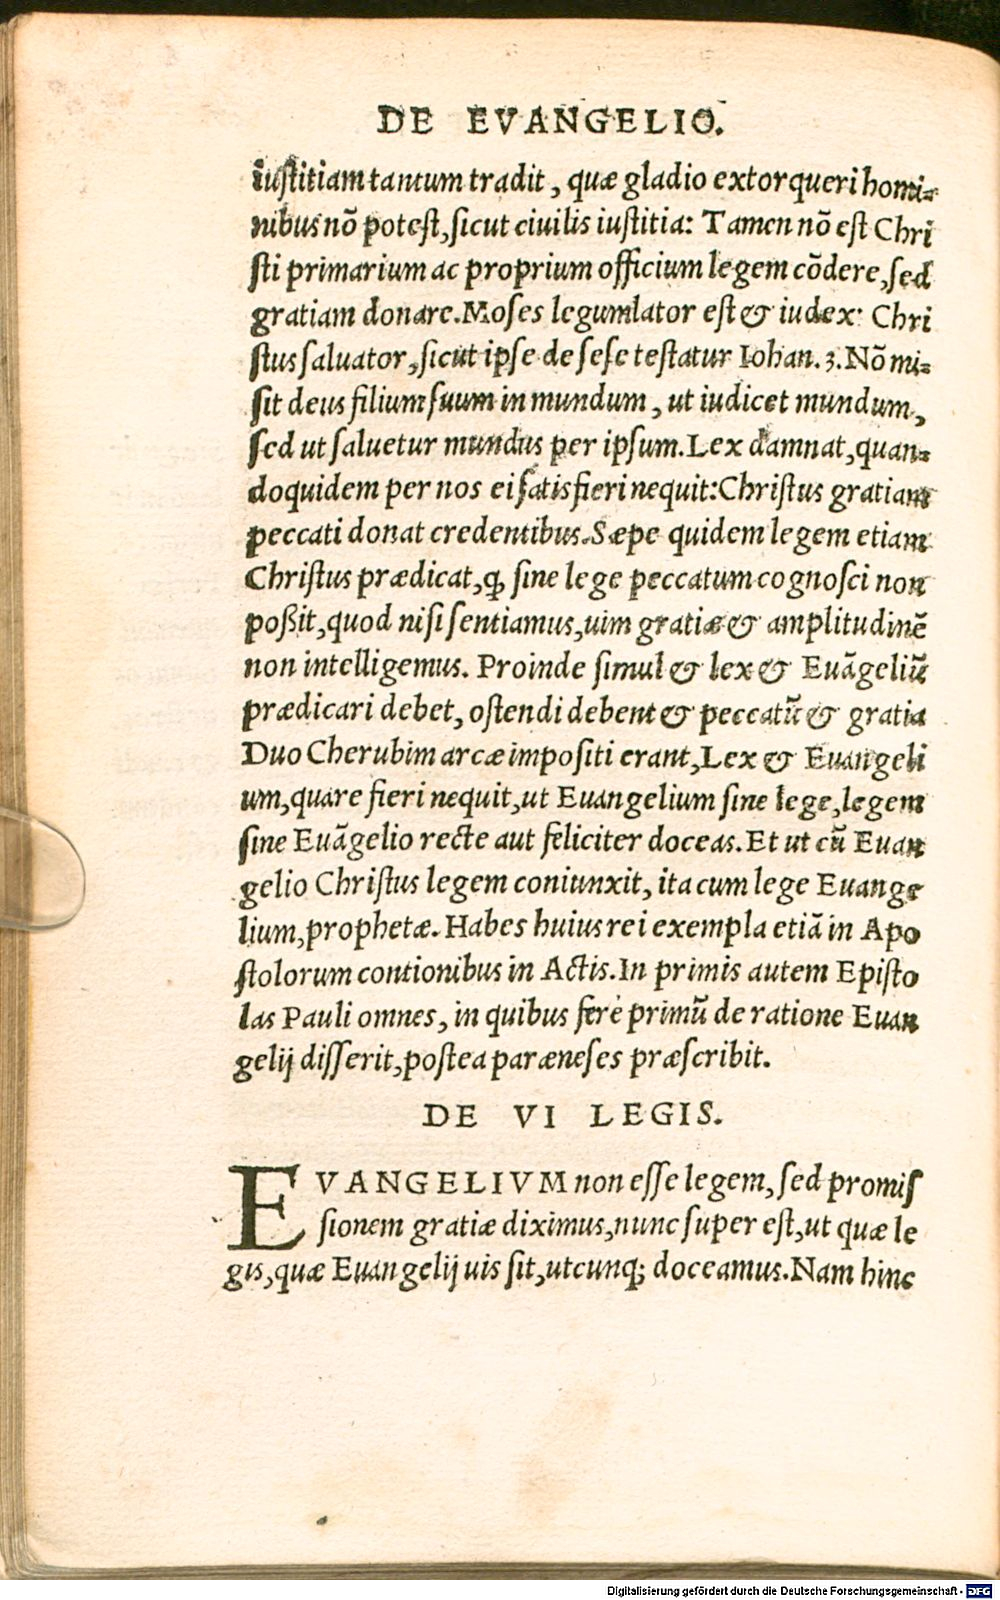 DE EVANGELIO.
iustitiam tantum tradit, quæ gladio extorqueri homi-
nibus nō potest, sicut ciuilis iustitia: Tamen nō est Chri
sti primarium ac proprium officium legem cōdere, sed
gratiam donare. Moses legumlator est & iudex: Chri
stus saluator, sicut ipse de sese testatur Iohan. 3. Nō mi-
sit deus filium suum in mundum, ut iudicet mundum,
sed ut saluetur mundus per ipsum. Lex damnat, quan-
doquidem per nos ei satisfieri nequit: Christus gratiam
peccati donat credentibus. Sæpe quidem legem etiam
Christus prædicat, ꝙ sine lege peccatum cognosci non
poßit, quod nisi sentiamus, uim gratiæ & amplitudinē
non intelligemus. Proinde simul & lex & Euāgeliū
prædicari debet, ostendi debent & peccatū & gratia
Duo Cherubim arcæ impositi erant, Lex & Euangeli
um, quare fieri nequit, ut Euangelium sine lege, legem
sine Euāgelio recte aut feliciter doceas. Et ut cū Euan
gelio Christus legem coniunxit, ita cum lege Euange
lium, prophetæ. Habes huius rei exempla etiā in Apo
stolorum contionibus in Actis. In primis autem Episto
las Pauli omnes, in quibus ferè primū de ratione Euan
gelij disserit, postea paræneses præscribit.
DE VI LEGIS.
EVANGELIVM non esse legem, sed promis
sionem gratiæ diximus, nunc super est, ut quæ le
gis, quæ Euangelij uis sit, utcunq; doceamus. Nam hinc
Digitalisierung gefördert durch die Deutsche Forschungsgemeinschaft - DFG